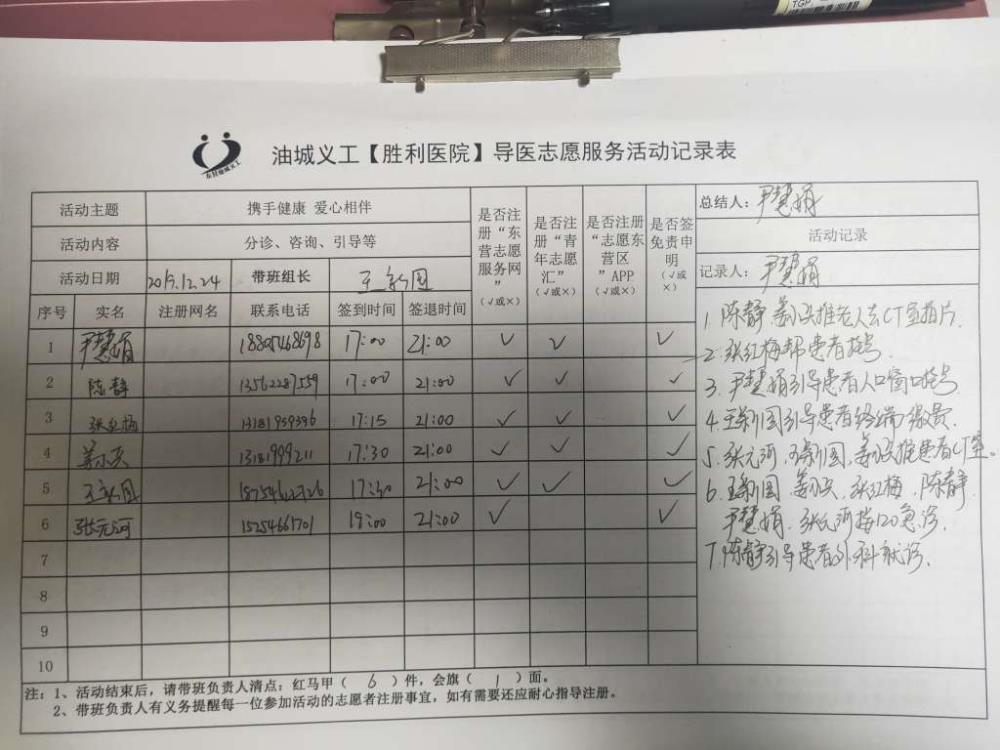 TGP.
东营油城义工
油城义工【胜利医院】导医志愿服务活动记录表
活动主题 携手健康 爱心相伴
活动内容 分诊、咨询、引导等
活动日期 2019.12.24 带班组长 王新国
是否注册“东营志愿服务网” (√或×)
是否注册“青年志愿汇” (√或×)
是否注册“志愿东营区”APP (√或×)
是否签免责申明 (√或×)
总结人：尹慧娟
活动记录
记录人：尹慧娟
序号 实名 注册网名 联系电话 签到时间 签退时间
1 尹慧娟 17:00 21:00 √ √ √
2 陈静 13562287559 17:00 21:00 √ √ √
3 张红梅 13181959396 17:15 21:00 √ √ √
4 姜 13181999211 17:30 21:00 √ √ √
5 王新国 21:00 √ √ √
6 张元河 15254661701 19:00 21:00 √ √
7
8
9
10
1. 陈静 姜 推老人去CT室拍片.
2. 张红梅帮患者挂号.
3. 尹慧娟引导患者人口窗口挂号
4. 王新国引导患者终端缴费.
5. 张元河,王新国,姜 推患者CT室。
6. 王新国 姜 张红梅. 陈静
尹慧娟. 张元河接120急诊.
7. 陈静引导患者外科就诊.
注：1、活动结束后，请带班负责人清点：红马甲（ 6 ）件，会旗（ 1 ）面。
2、带班负责人有义务提醒每一位参加活动的志愿者注册事宜，如有需要还应耐心指导注册。